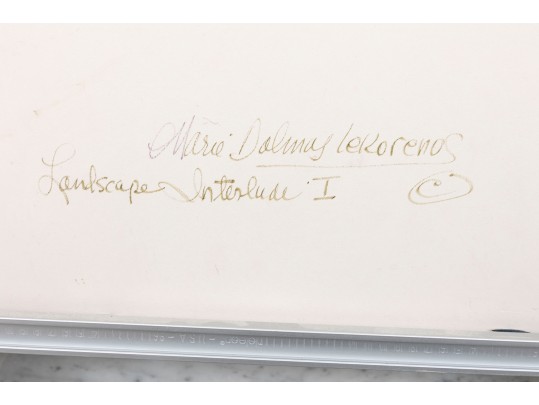 Marie Dalmas Lekorenos
Landscape Interlude I ©